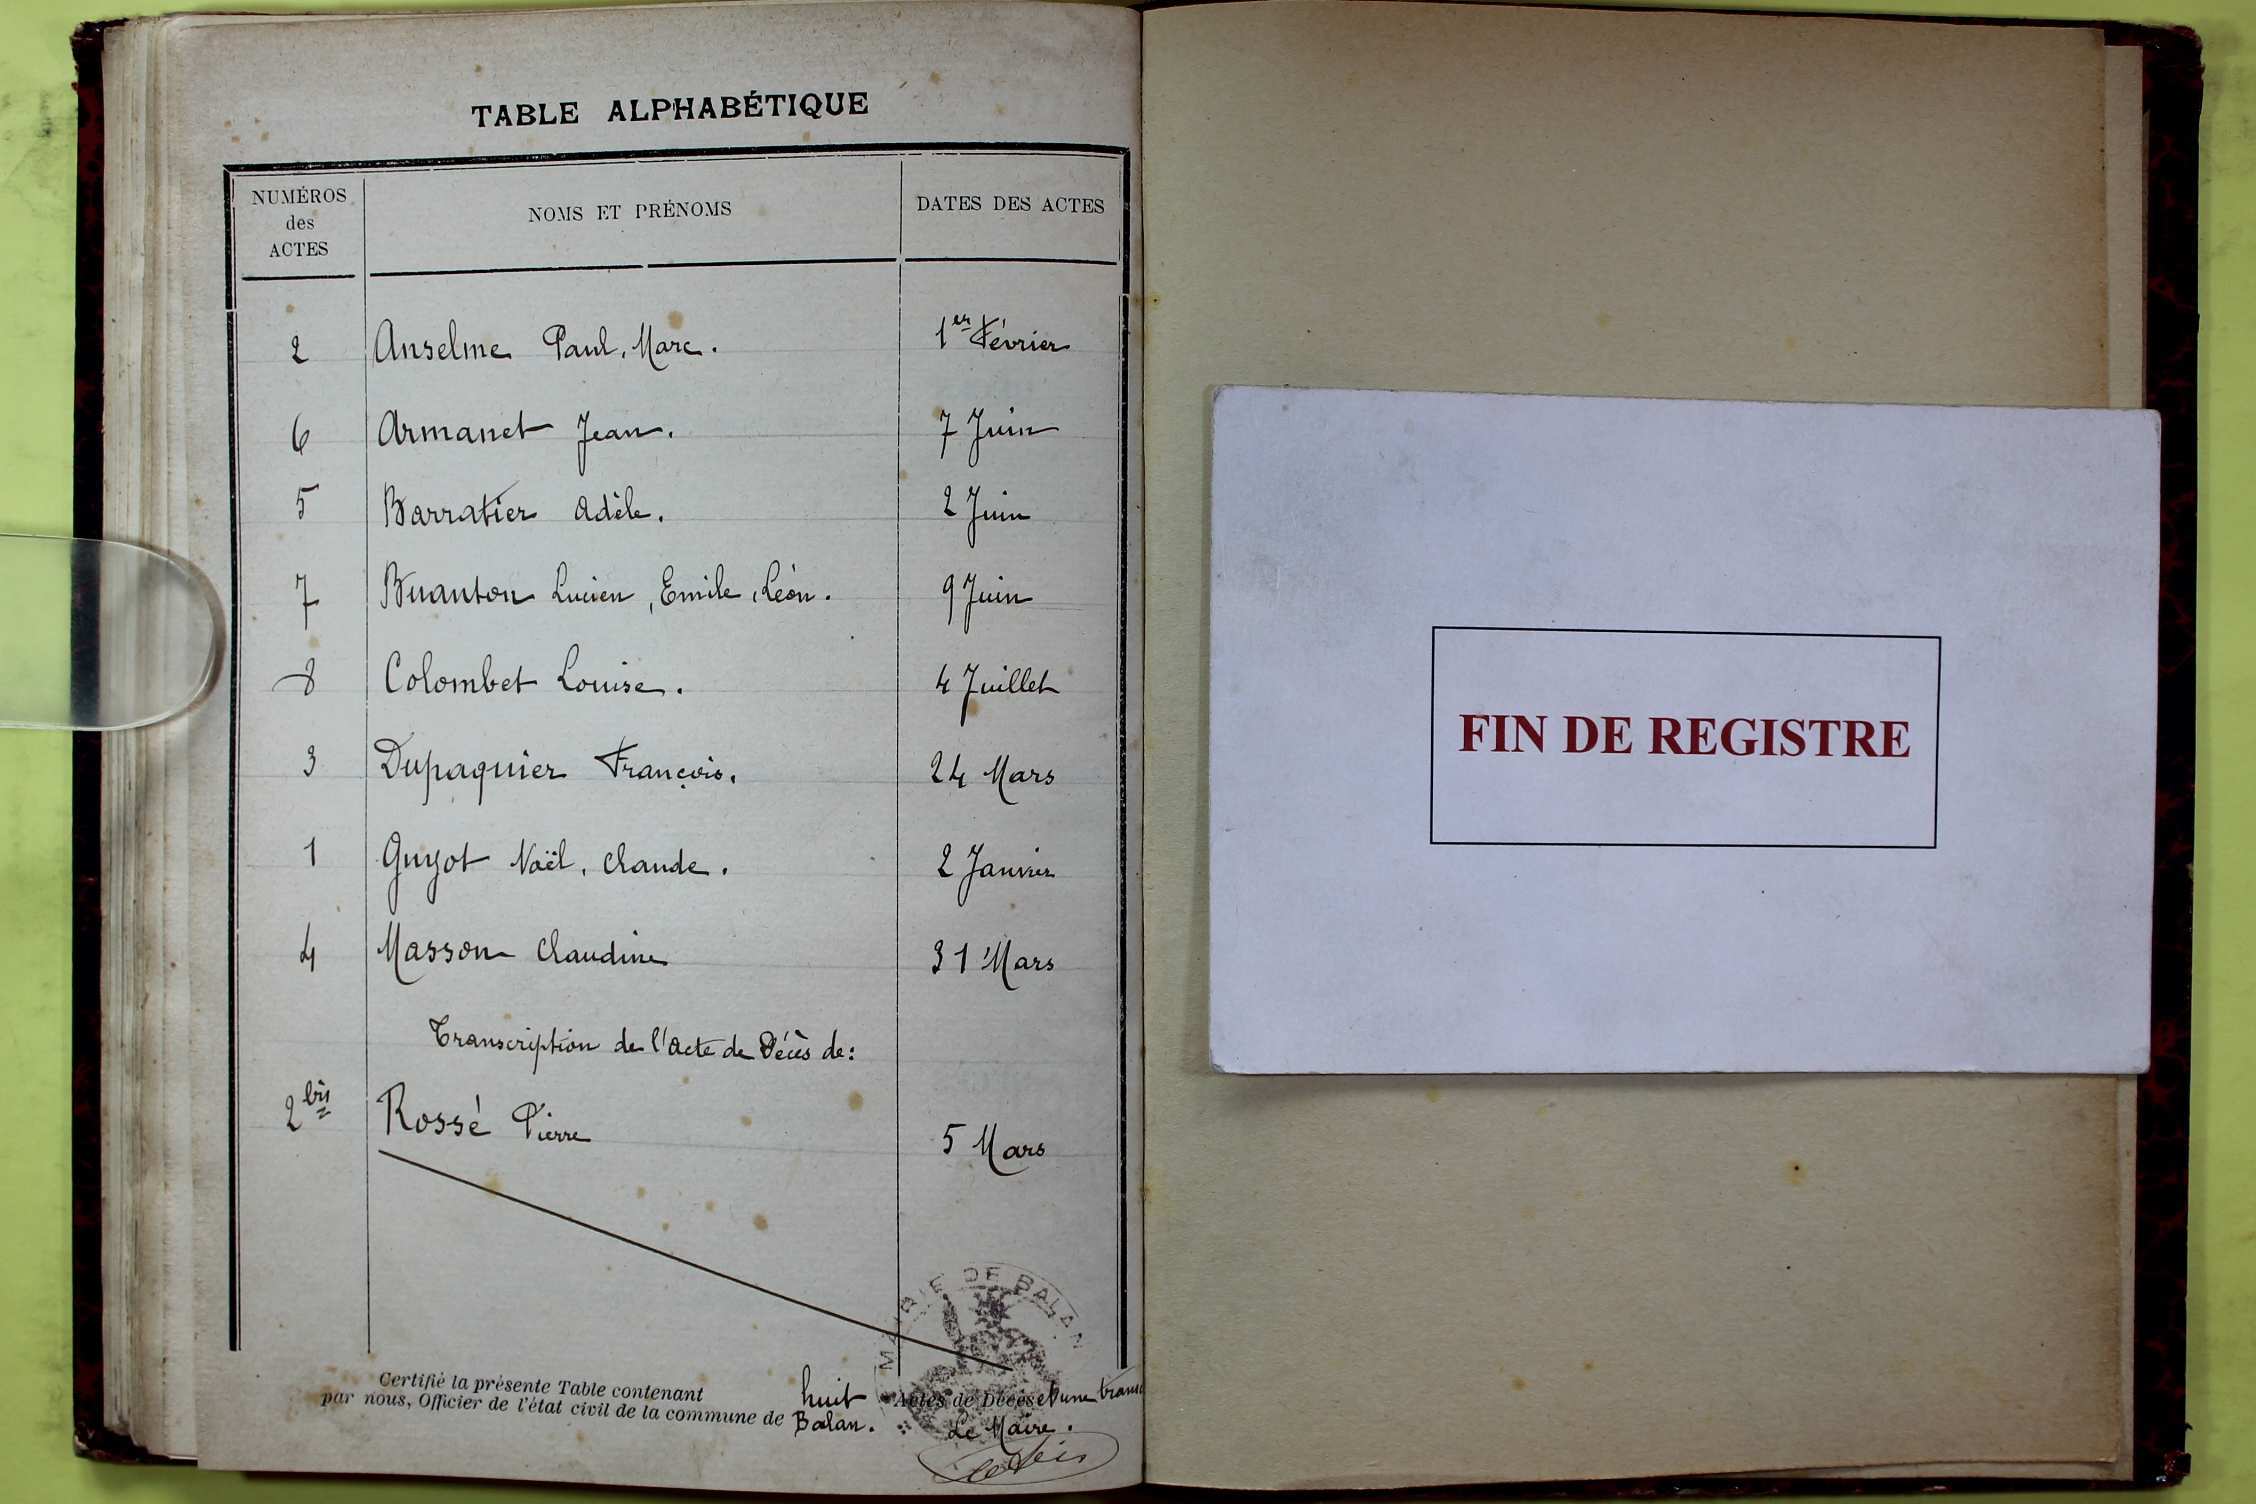 TABLE ALPHABÉTIQUE
NUMÉROS des ACTES NOMS ET PRÉNOMS DATES DES ACTES
2 Anselme Paul, Marc. 1er Février
6 Armanet Jean. 7 Juin
5 Barratier Adèle. 2 Juin
7 Buanton Lucien, Emile, Léon. 9 Juin
8 Colombet Louise. 4 Juillet
3 Dupaquier François. 24 Mars
1 Guyot Noël, Claude. 2 Janvier
4 Masson Claudine 31 Mars
Transcription de l'acte de Décès de:
2 bis Rossé Pierre 5 Mars
MAIRIE DE BALAN
Certifié la présente Table contenant huit Actes de Décès et une
par nous, Officier de l'état civil de la commune de Balan.
Le Maire.
FIN DE REGISTRE